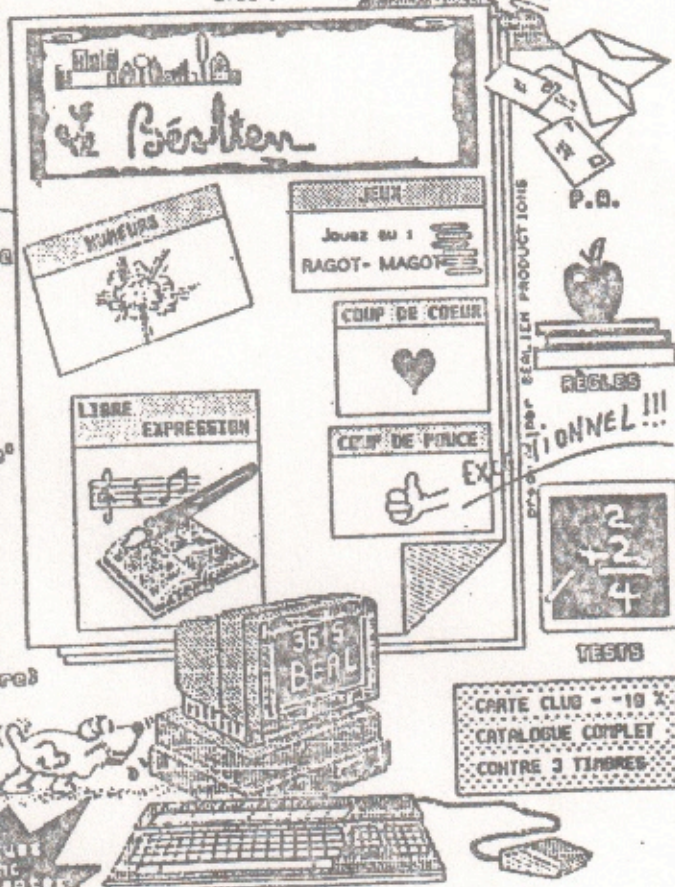 Béalien
HUMEURS
JEUX
Jouez au :
RAGOT-MAGOT
COUP DE COEUR
LIBRE
EXPRESSION
COUP DE POUCE
P.A.
BEALIEN PRODUCTIONS
RÈGLES
2
+2
4
TESTS
3615
BEAL
CARTE CLUB = -10 %
CATALOGUE COMPLET
CONTRE 3 TIMBRES